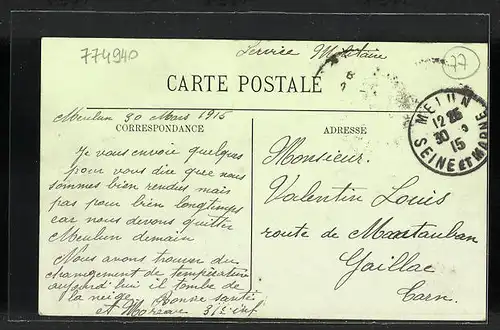 774940
Service Militaire
77
CARTE POSTALE
MELUN
12 25
30 3
15
SEINE ET MARNE
Meulun 30 Mars 1915
CORRESPONDANCE
ADRESSE
Je vous envoie quelques
pour vous dire que nous
sommes bien rendus mais
pas pour bien longtemps
car nous devons quitter
Meulun demain
Nous avons trouver du
changement de température
aujord'hui il tombe de
la neige. Bonne santé
et 31e inf
Monsieur
Valentin Louis
route de Montauban
Gaillac
Tarn